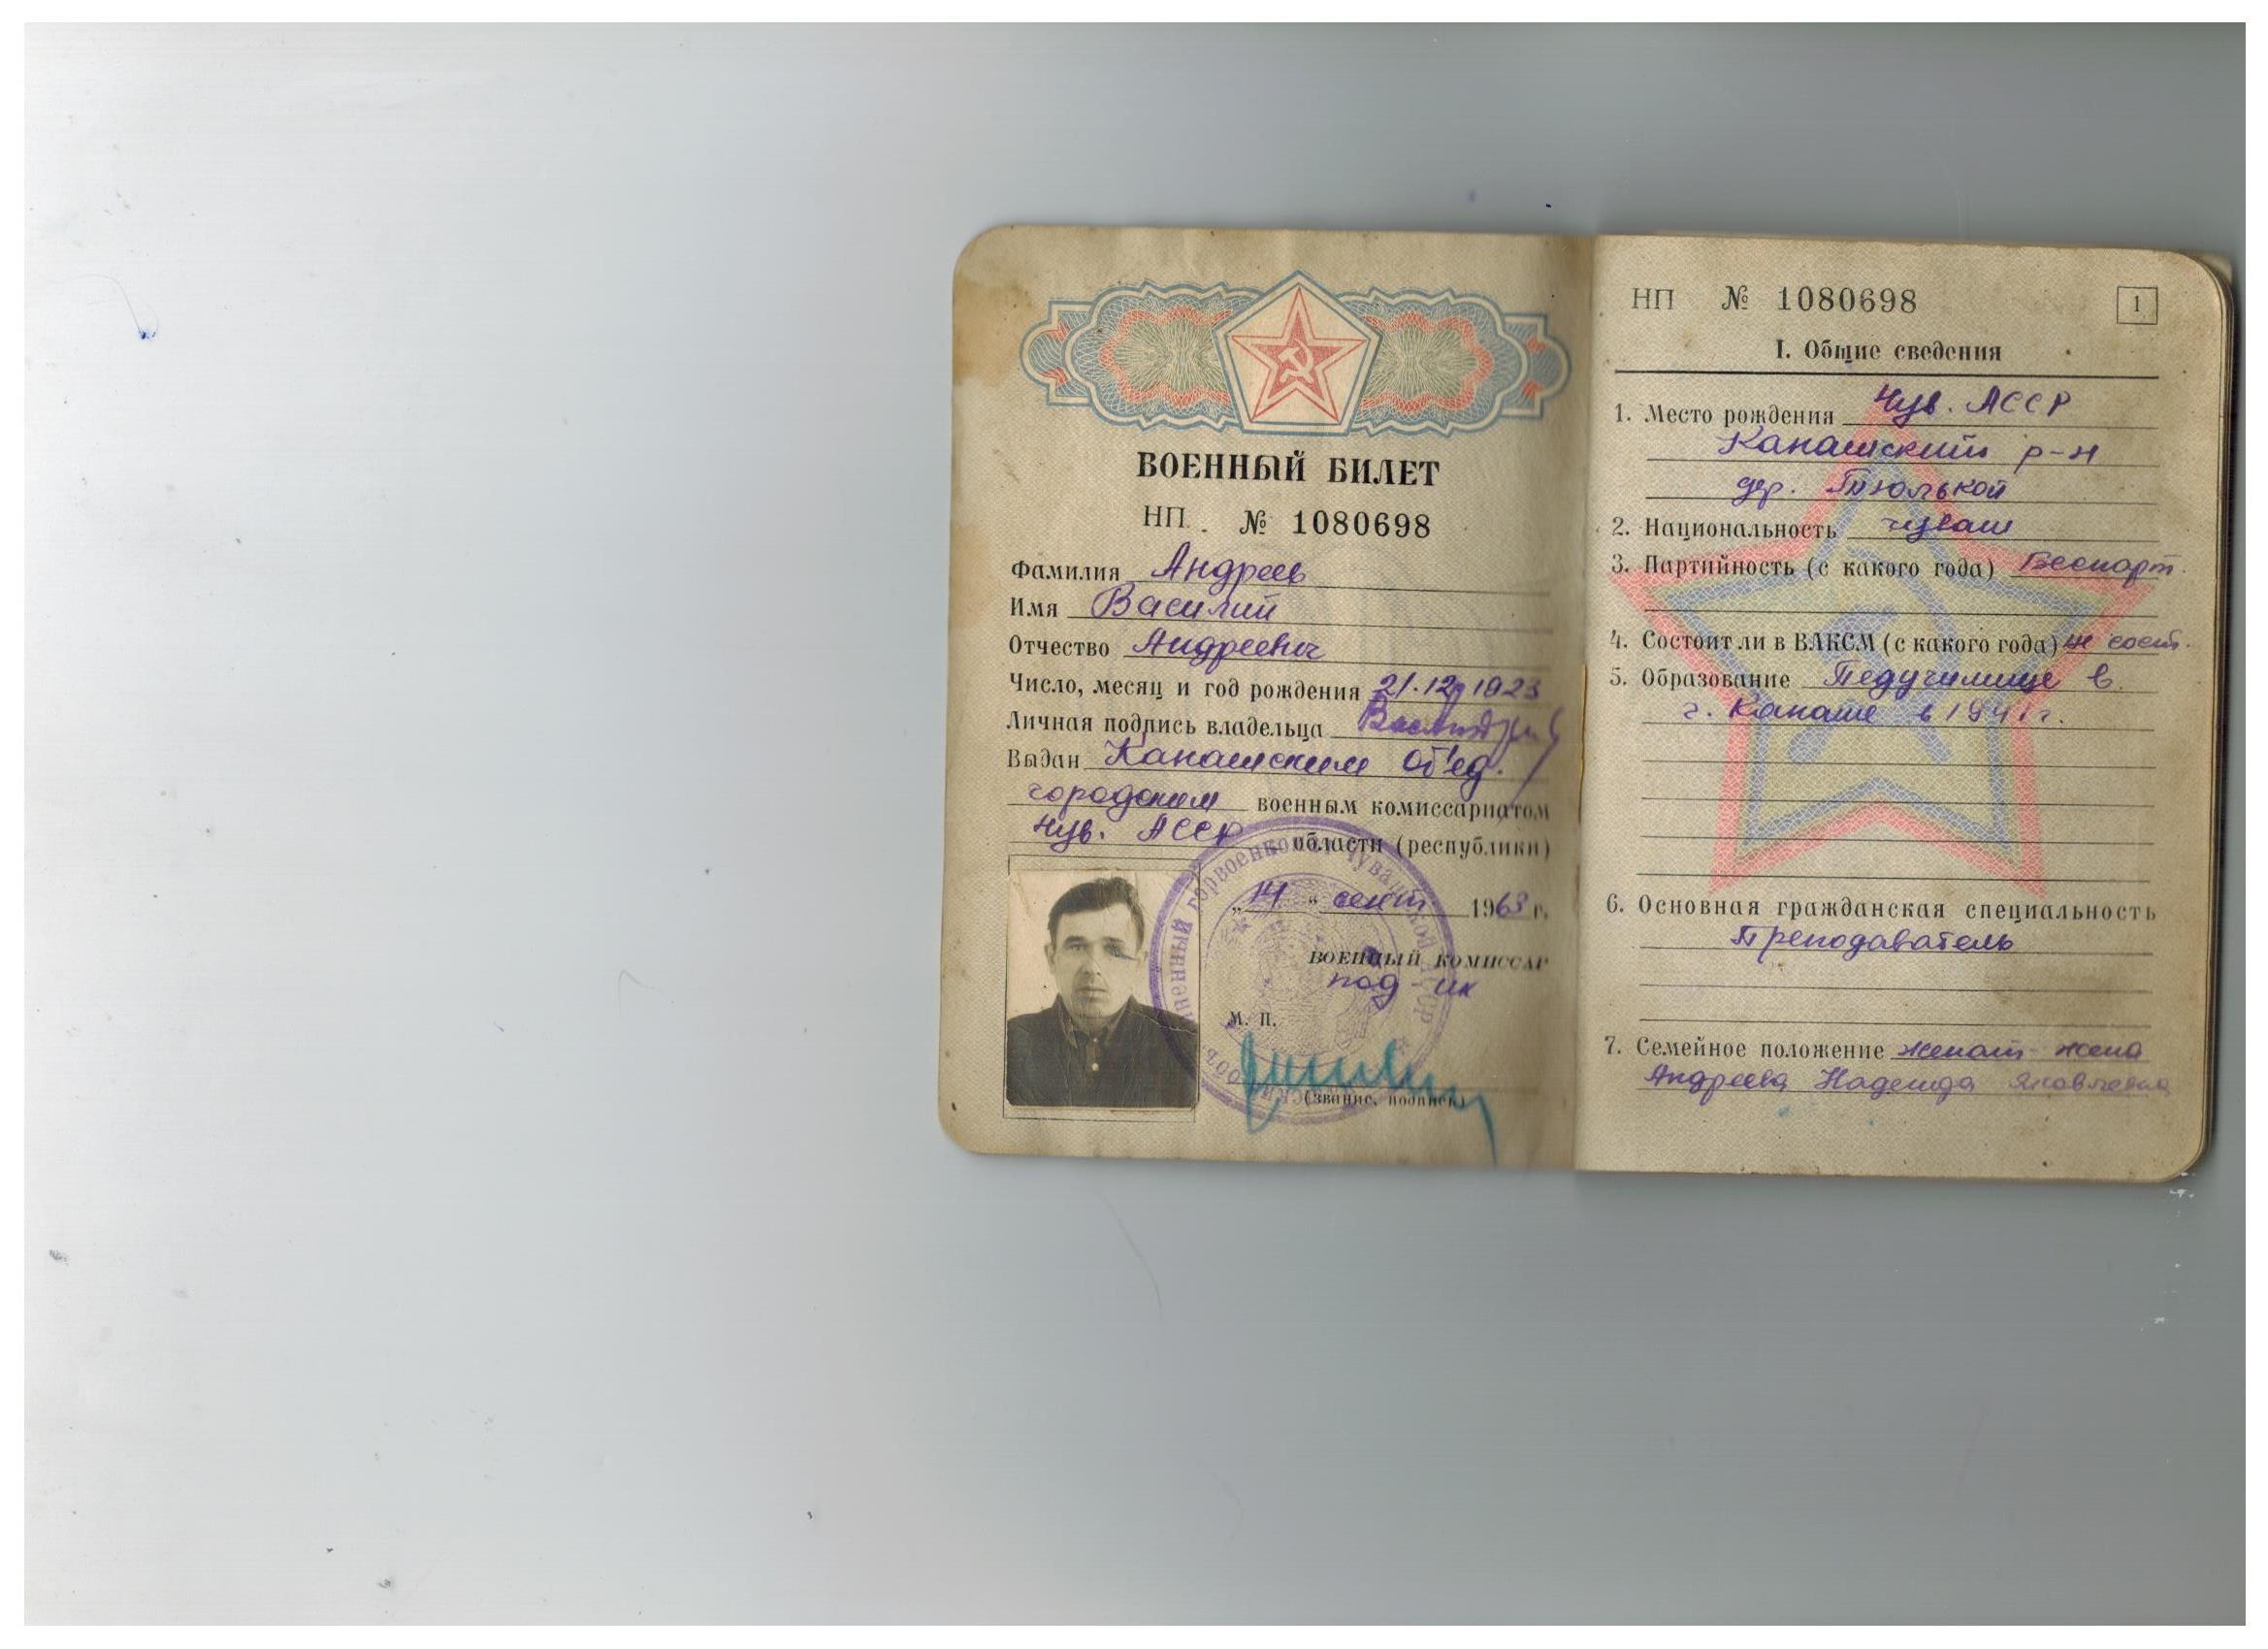 ВОЕННЫЙ БИЛЕТ
НП № 1080698
Фамилия Андреев
Имя Василий
Отчество Андреевич
Число, месяц и год рождения 21.12.1923
Личная подпись владельца
Выдан Канашским Об'ед.
городским военным комиссариатом
Чув. АССР области (республики)
„14“ сент 1963 г.
ВОЕННЫЙ КОМИССАР
под-ик
М. П.
(звание, подпись)
НП № 1080698
1
I. Общие сведения
1. Место рождения Чув. АССР
Канашский р-н
дер. Тюлькой
2. Национальность чуваш
3. Партийность (с какого года) Беспарт.
4. Состоит ли в ВЛКСМ (с какого года) не сост.
5. Образование Педучилище в
г. Канаше в 1941 г.
6. Основная гражданская специальность
Преподаватель
7. Семейное положение женат - жена
Андреева Надежда Яковлевна